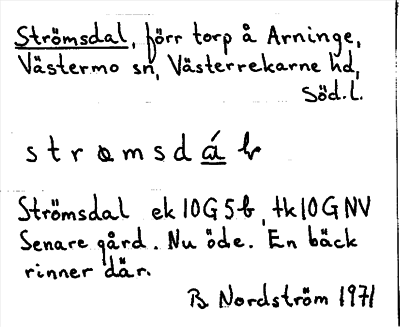 Strömsdal, förr torp å Arninge,
Västermo sn, Västerrekarne hd,
Söd.l.
Strömsdal ek 10G5b, tk10GNV
Senare gård. Nu öde. En bäck
rinner där.
B Nordström 1971